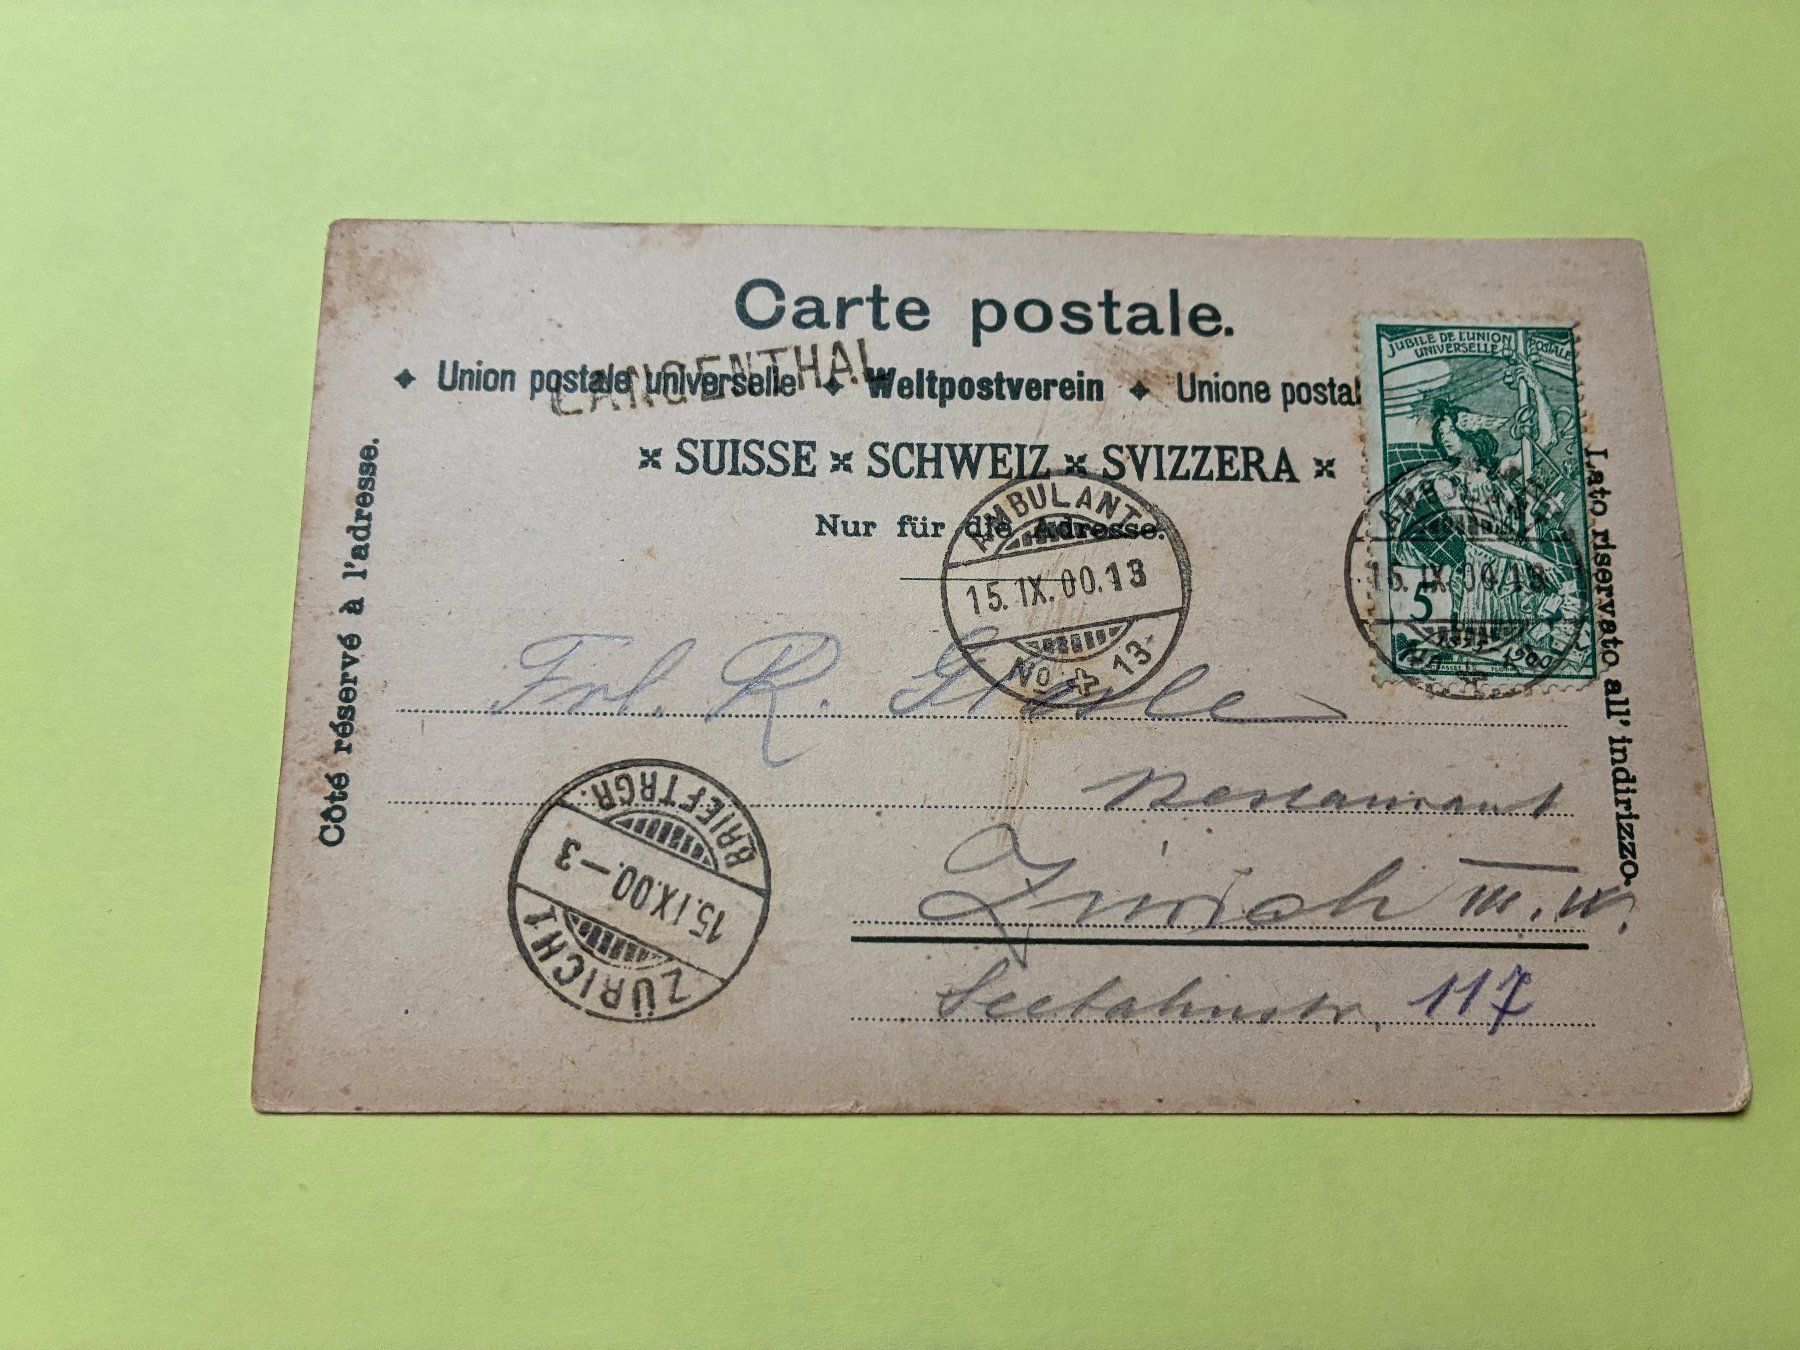 Carte postale.
Union postale universelle Weltpostverein Unione postal
LANGENTHAL
SUISSE SCHWEIZ SVIZZERA
Nur für die Adresse.
Côté réservé à l'adresse.
Lato riservato all' indirizzo.
JUBILÉ DE L'UNION POSTALE
UNIVERSELLE
5
1900
AMBULANT
15. IX. 00. 13
No 13
AMBULANT
15. IX. 00. 13
No
Frl. R.
Restaurant
Zürich III. W.
117
BRIEFTRGR.
15. IX. 00. – 3
ZÜRICH 1